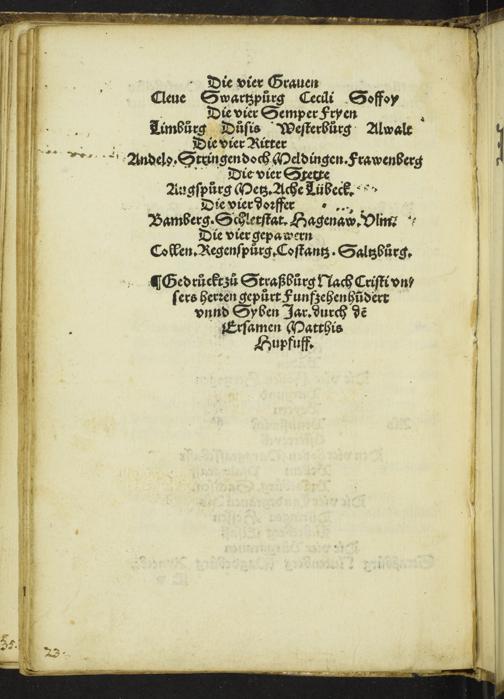 Die vier Grauen
Cleue Swartzpůrg Cecili Soffoy
Die vier Semper Fryen
Limbůrg Důsis Westerbůrg Alwalt
Die vier Ritter
Andelo. Stringendoch Meldingen. Frawenberg
Die vier Stette
Augspůrg Metz. Ache Lůbeck.
Die vier dorffer
Bamberg. Schletstat. Hagenaw. Vlm.
Die vier gepawern
Collen. Regenspůrg. Costantz. Saltzbůrg.
¶Gedrůckt zů Straßbůrg Nach Cristi vn/
sers herren gepůrt Funfzehenhůdert
vnnd Syben Jar. durch dē
Ersamen Matthis
Hupfuff.
35.
23.